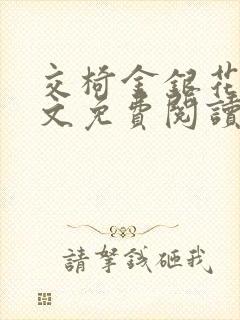 交椅金銀花
文免費閱讀
請拏錢砸我